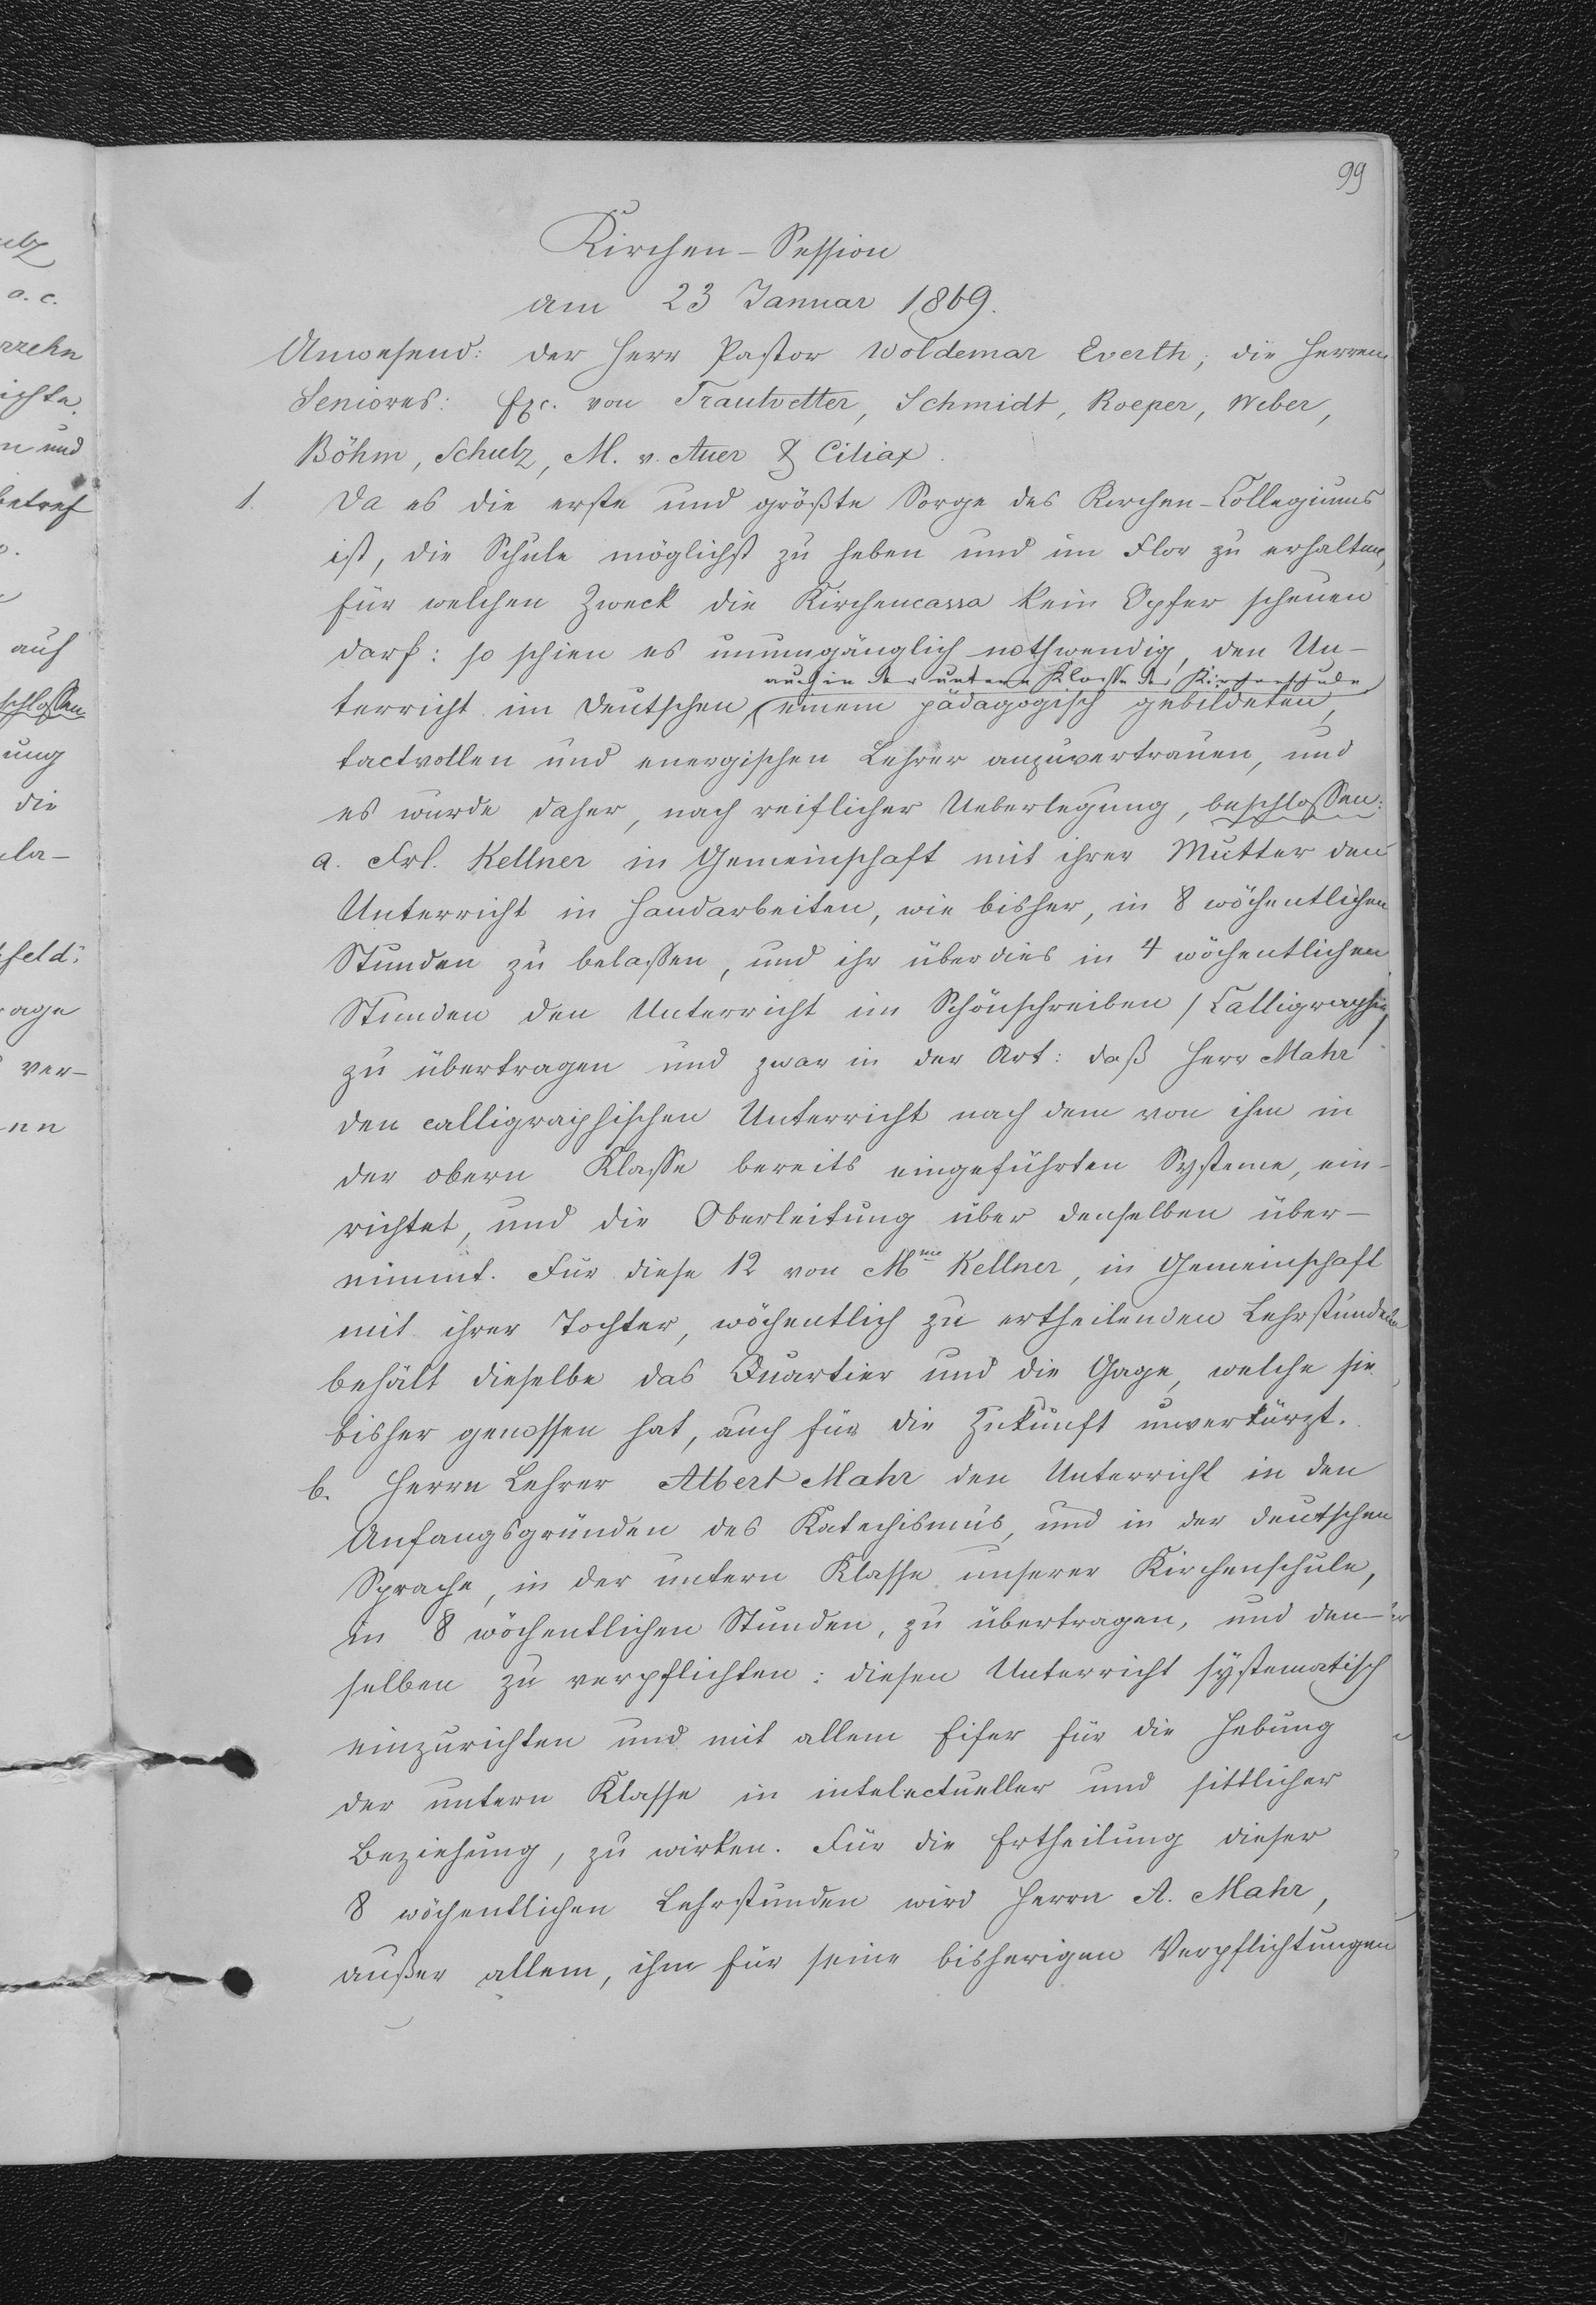 99
Kirchen-Session
am 23 Januar 1869.
Anwesend: der Herr Pastor Woldemar Everth, die Herren
Seniores: Exc. von Trautvetter, Schmidt, Roeper, Weber,
Böhm, Schulz, M. v. Auer & Ciliax.
1. Da es die erste und größte Sorge des Kirchen-Collegiums
ist, die Schule möglichst zu heben und im Flor zu erhalten,
für welchen Zweck die Kirchencassa kein Opfer scheuen
darf: so schien es unumgänglich nothwendig, den Un-
auch in der untern Klasse der Kirchenschule
terricht im Deutschen, einem pädagogisch gebildeten,
tactvollen und energischen Lehrer anzuvertrauen, und
es wurde daher, nach reiflicher Ueberlegung, beschlossen:
a. Frl. Kellner in Gemeinschaft mit ihrer Mutter den
Unterricht in Handarbeiten, wie bisher, in 8 wöchentlichen
Stunden zu belassen, und ihr überdies in 4 wöchentlichen
Stunden den Unterricht im Schönschreiben /Calligraphie/
zu übertragen und zwar in der Art: daß Herr Mahr
den calligraphischen Unterricht nach dem von ihm in
der obern Klasse bereits eingeführten Systeme, ein-
richtet, und die Oberleitung über denselben über-
nimmt. Für diese 12 von Mme Kellner, in Gemeinschaft
mit ihrer Tochter, wöchentlich zu ertheilenden Lehrstunden
behält dieselbe das Quartier und die Gage, welche sie
bisher genossen hat, auch für die Zukunft unverkürzt.
b. Herrn Lehrer Albert Mahr den Unterricht in den
Anfangsgründen des Katechismus, und in der deutschen
Sprache, in der untern Klasse unserer Kirchenschule,
in 8 wöchentlichen Stunden, zu übertragen, und den-
selben zu verpflichten: diesen Unterricht systematisch
einzurichten und mit allem Eifer für die Hebung
der untern Klasse in intelectueller und sittlicher
Beziehung, zu wirken. Für die Ertheilung dieser
8 wöchentlichen Lehrstunden wird Herrn A. Mahr,
außer allem, ihm für seine bisherigen Verpflichtungen